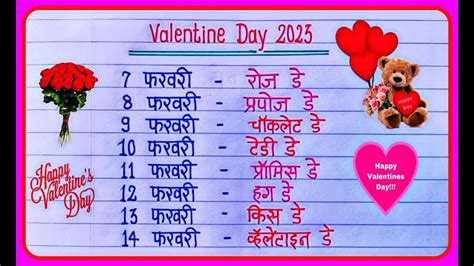 Valentine Day 2023
7 फरवरी - रोज डे
8 फरवरी - प्रपोज डे
9 फरवरी - चॉकलेट डे
10 फरवरी - टेडी डे
11 फरवरी - प्रॉमिस डे
12 फरवरी - हग डे
13 फरवरी - किस डे
14 फरवरी - व्हॅलेंटाइन डे
Happy
Valentine's
Day
HAPPY
DAY
Happy
Valentines
Day!!!